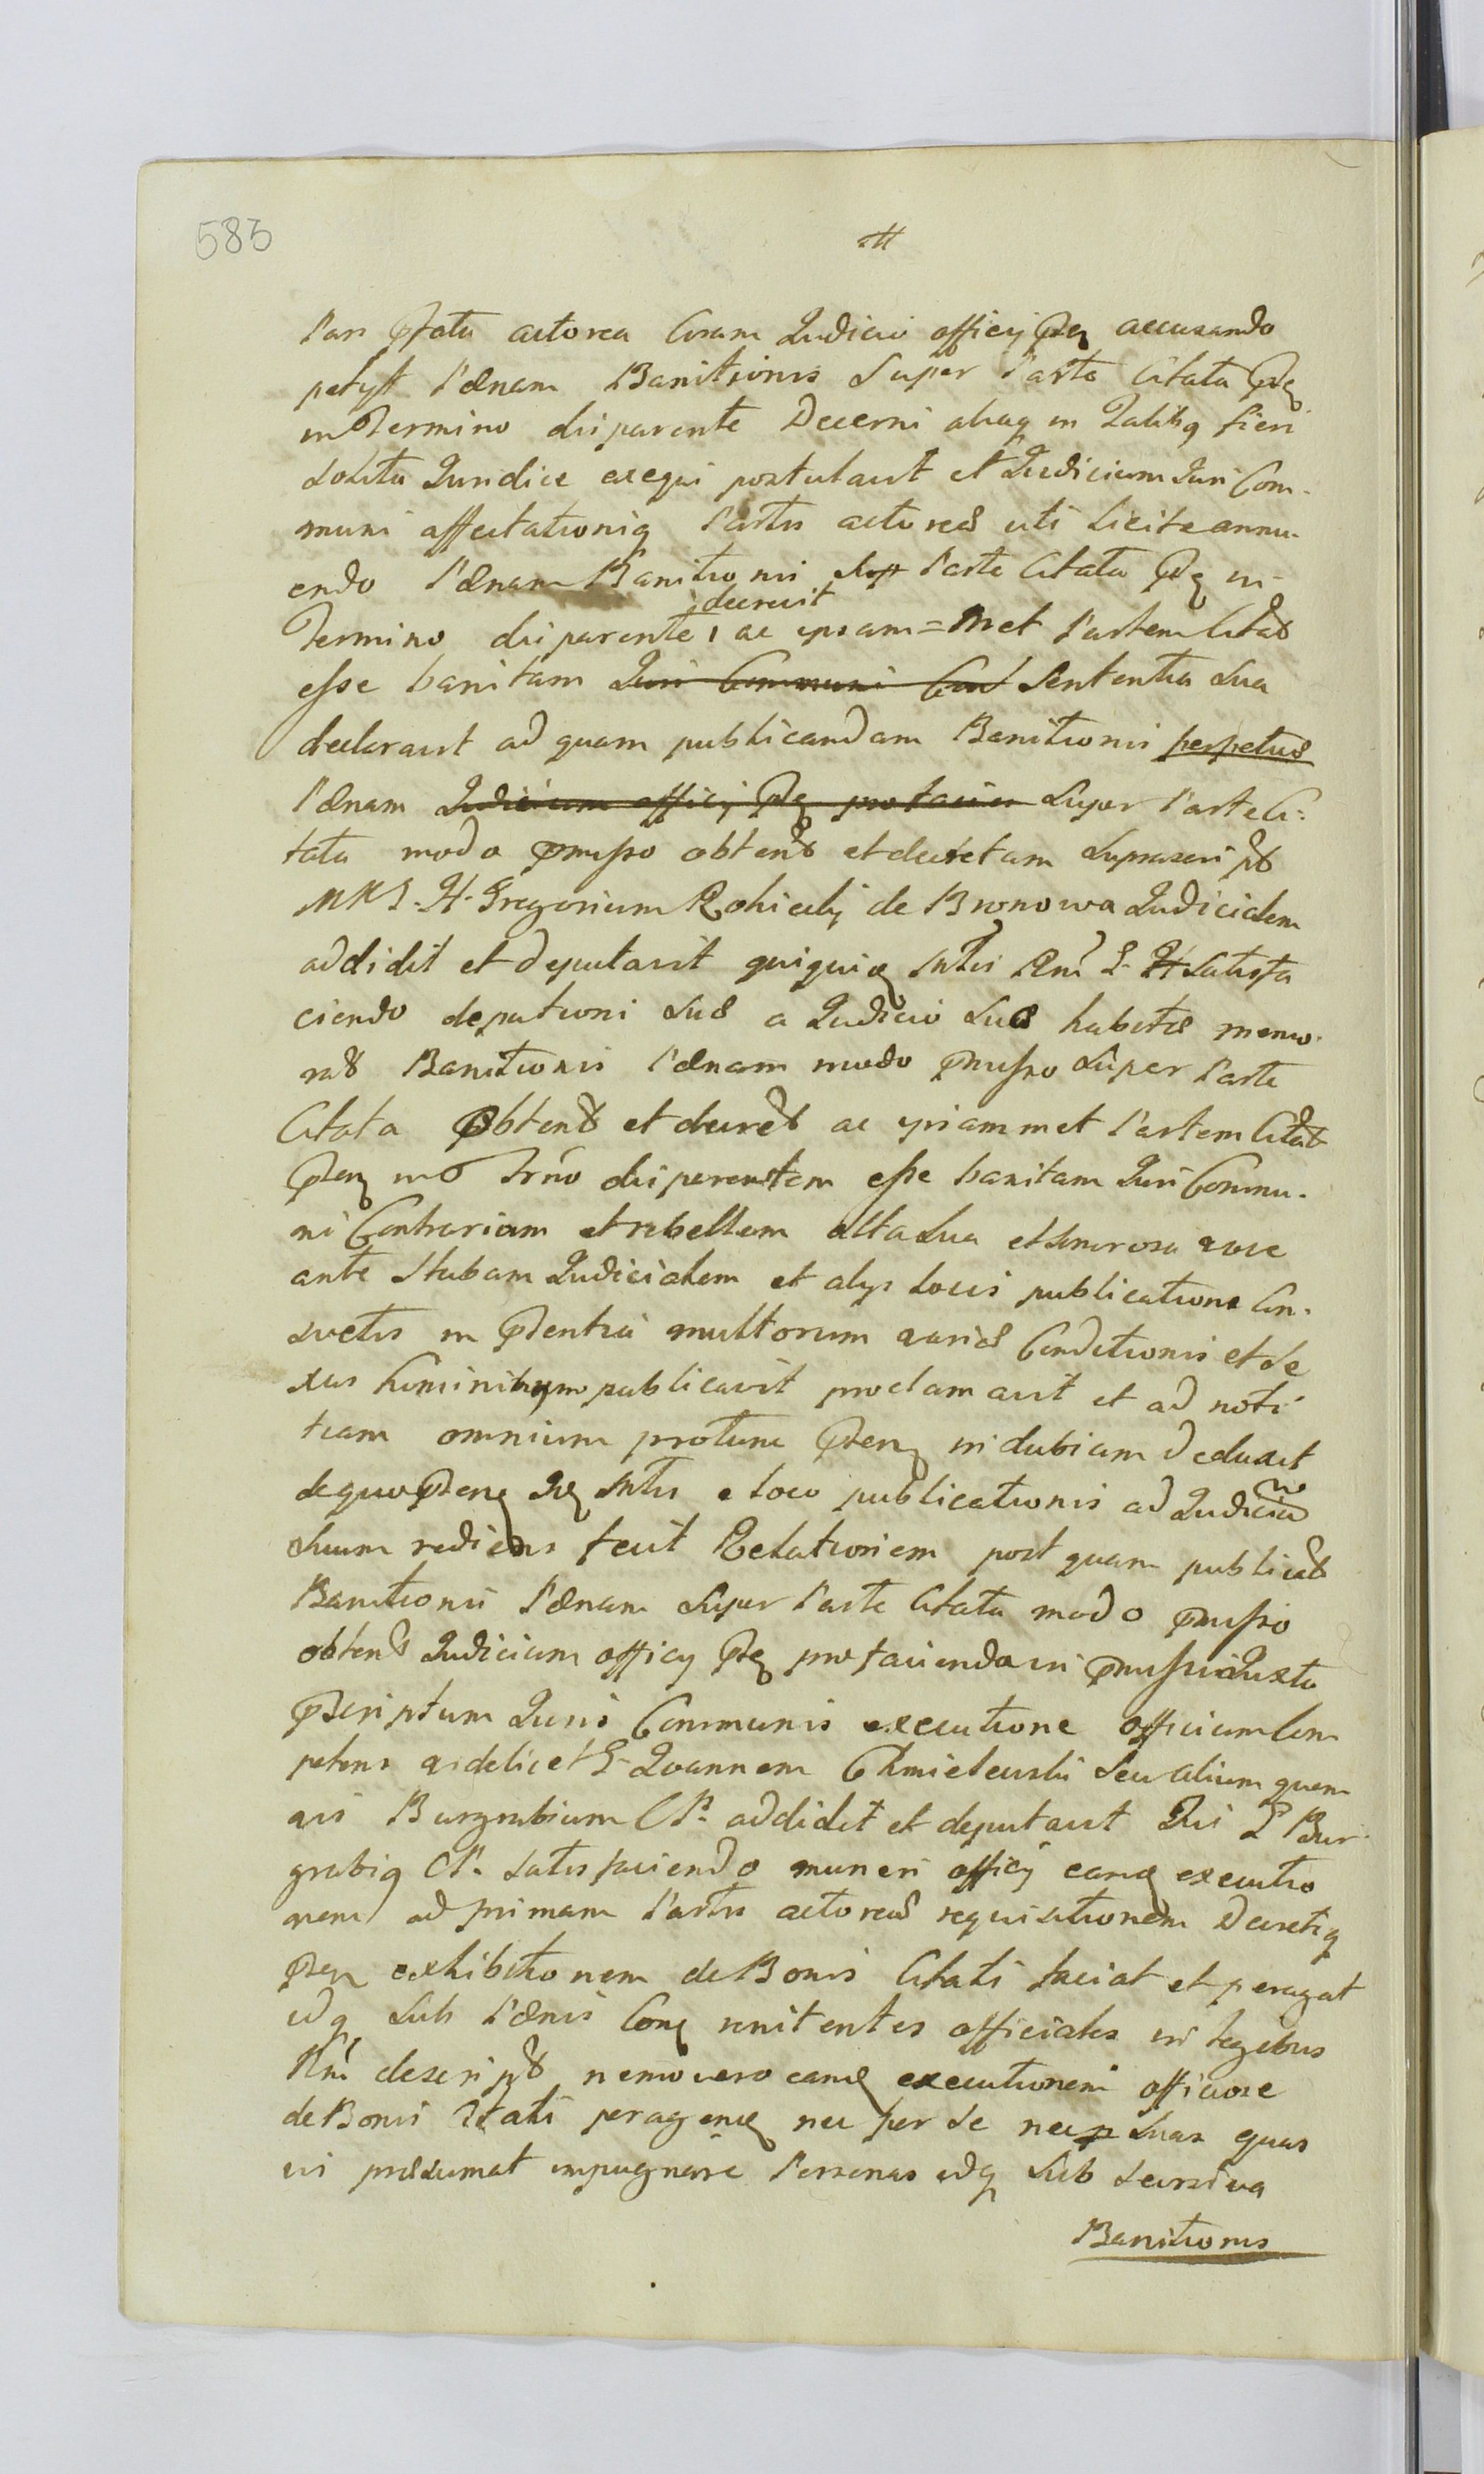 585
Pars pfata actorea Coram Judicio officij pñ accusando
petyt Pænam Banitionis Super Parte Citata pñ
in Termino disparente Decerni aliaq in Talibq fieri
Solita Juridice exequi postulavit et Judicium Juri Com-
muni affectationiq Partis actoreæ uti licite annu-
endo Pænam Banitionis Parte Citata pñ in
decrevit
Termino disparente, ac ipsam=met Partem Citatã
esse banitam Juri Communi Con Sententia Sua
declaravit ad quam publicandam Banitionis perpetuæ
Pænam Judicium officij pñ Super Parte Ci-
tata modo pmisso obtentã et decretam suprascriptã
MRS. H. Gregorium de Bronowa Judicialem
addidit et deputavit quiquiæ Mtris Rni S. H Satisfa
ciendo deputationi Suæ a Judicio Suæ habitæ memo-
ratã Banitionis Pænam modo pmisso Super Parte
Citata Obtentã et decretã ac ipsammet Partem Citatã
pñ in Trno disparentem esse banitam Juri Commu-
ni Contrariam et rebellem alta Sua et sonorosa voce
ante Stubam Judicialem et alys Locis publicatione Con-
suetis in pñentia multorum variæ Conditionis et Se
xus hominibus publicavit proclamavit et ad noti
tiam omnium protunc pñ indubiam Deduxit
de quo pñ Mtris e loco publicationis ad Judiciũ
Suum rediens fecit Relationem post quam publicatã
Banitionis Pænam Super Parte Citata modo pmisso
obtentã Judicium officij pñ pro facienda in pmissis Juxta
pscriptum Juris Communis executione officium Com
petens videlicet S. Joannem Chmielewski Seu alium quem
vis Burgrabium CP. addidit et deputavit Qui S Bur-
grabiq CP. satisfaciendo muneri officij eamq executio
nem ad primam Partis actoreæ requisitionem Decretiq
pñ exhibitionem de Bonis Citati faciat et peragat
idq Sub Pænis Conq renitentes officiales in legibus
Rni descriptã nemo vero eamq executionem officiose
de Bonis Citati peragenq nec per Se nec p Suas quas
vis præsumat impugnare Personas idq Sub
Banitionis